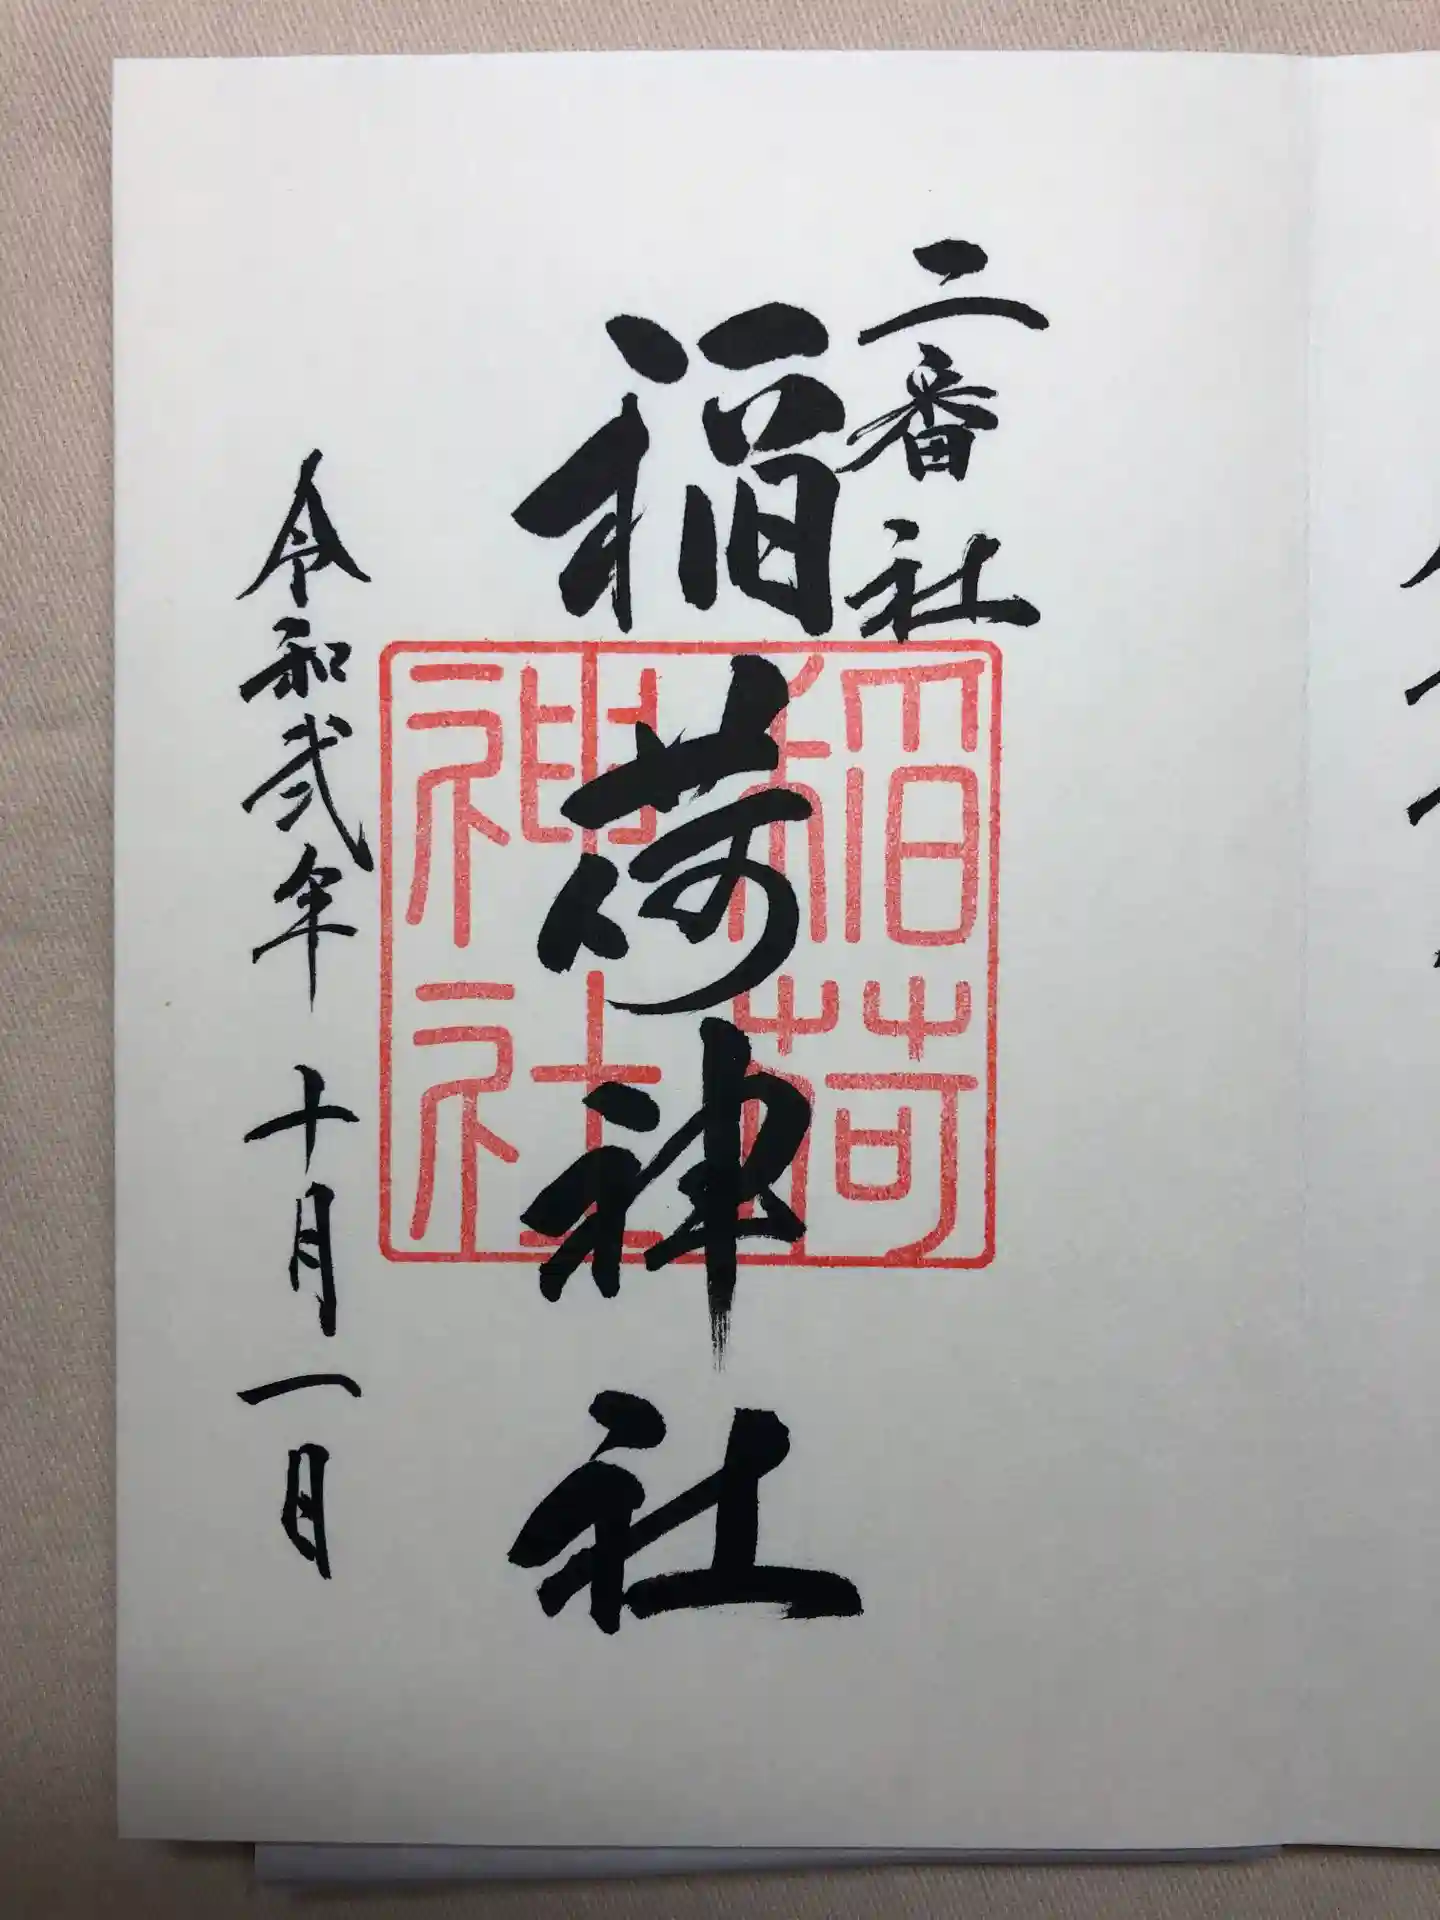 二番社
稲荷神社
稲荷
神社
令和弐年 十月一日